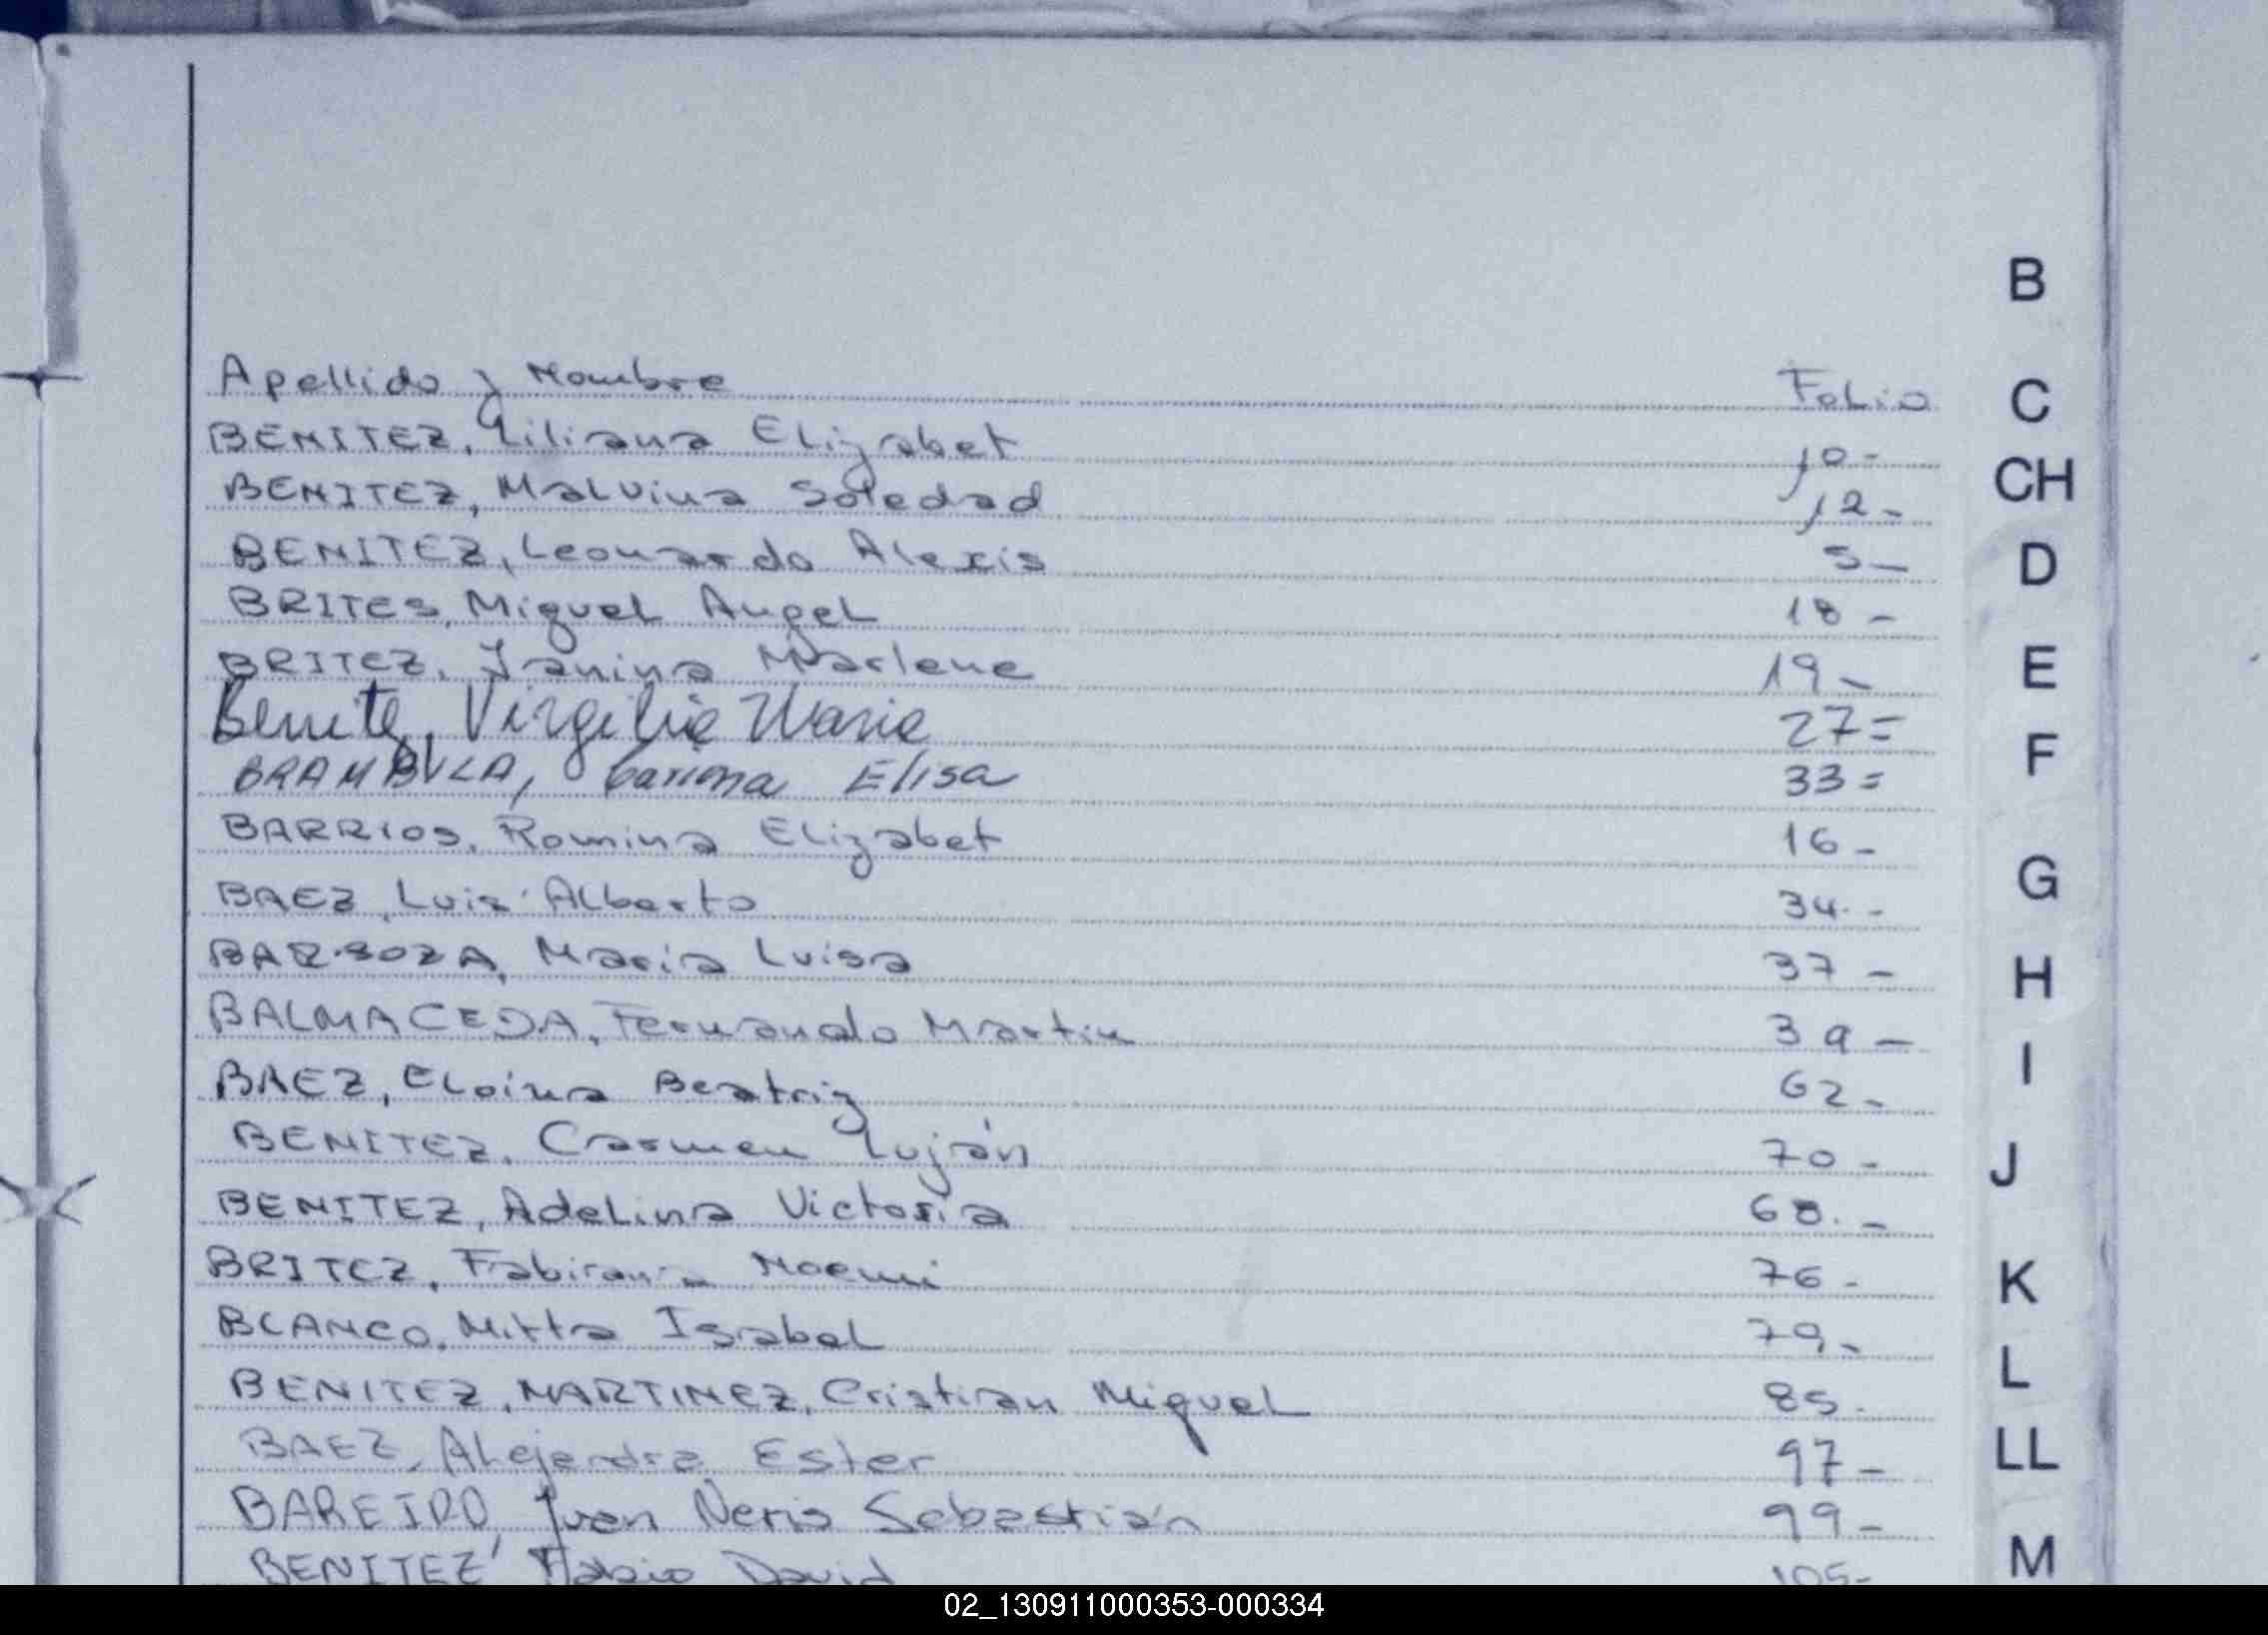 B
Apellido y Nombre Folio C
BENITEZ, Liliana Elizabet 10-
BENITEZ, Malvina Soledad 12- CH
BENITEZ, Leonardo Alexis 5- D
BRITES, Miguel Angel 18-
BRITEZ, Janina Marlene 19- E
Benitez, Virgilio Mario 27= F
BRAMBULA, Elisa 33=
BARRIOS, Romina Elizabet 16-
BAEZ, Luis Alberto 34.- G
BARBOZA, Maria Luisa 37- H
BALMACEDA, Fernando Martin 39-
BAEZ, Eloina Beatriz 62- I
BENITEZ, Carmen Luján 70- J
BENITEZ, Adelina Victoria 68.-
BRITEZ, Fabirana Noemi 76- K
BLANCO, Mirta Isabel 79-
BENITEZ, MARTINEZ, Cristian Miguel 85- L
BAEZ, Alejandra Ester 97- LL
BAREIRO, Juan Neris Sebastián 99-
BENITEZ, Fabio David 105- M
02_130911000353-000334